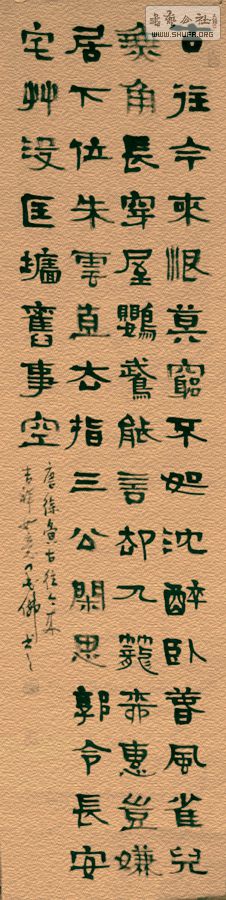 古往今來恨莫窮不如沈醉臥春風雀兒
無角長穿屋鸚鵡能言却入籠柳惠豈嫌
居下位朱雲直去指三公閑思郭令長安
宅艸沒匡墻舊事空
唐徐夤古往今來
吉祥
書藝公社
WWW.SHUFA.ORG